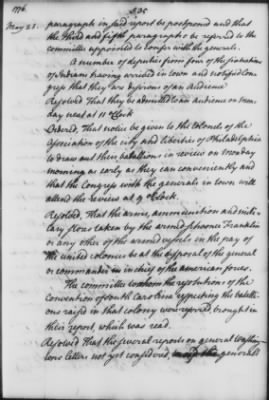 1776.
525
May 25.
paragraphs in said report be postponed and that
the third and fifth paragraphs be referred to the
committee appointed to confer with the generals.
A number of deputies from four of the six nations
of Indians having arrived in town and notified Con
gress that they are desirous of an Audience
Resolved That they be admitted to an Audience on mon
day next at 11 oClock
Ordered, That notice be given to the Colonels of the
Association of the city and liberties of Philadelphia
to draw out their batallions in review on monday
morning as early as they can conveniently
and that the Congress with the generals in town will
attend the review at 9 oClock.
Resolved, That the arms, ammunition and mili
tary stores taken by the armed schooner Franklin
or any other of the armed vessels in the pay of
the united colonies be at the disposal of the general
or commander in chief of the american forces.
The committee to whom the resolutions of the
Convention of South Carolina respecting the batalli
ons raised in that colony were referred, brought in
their report, which was read.
Resolved That the several reports on general Washing
tons letters not yet considered, the generals